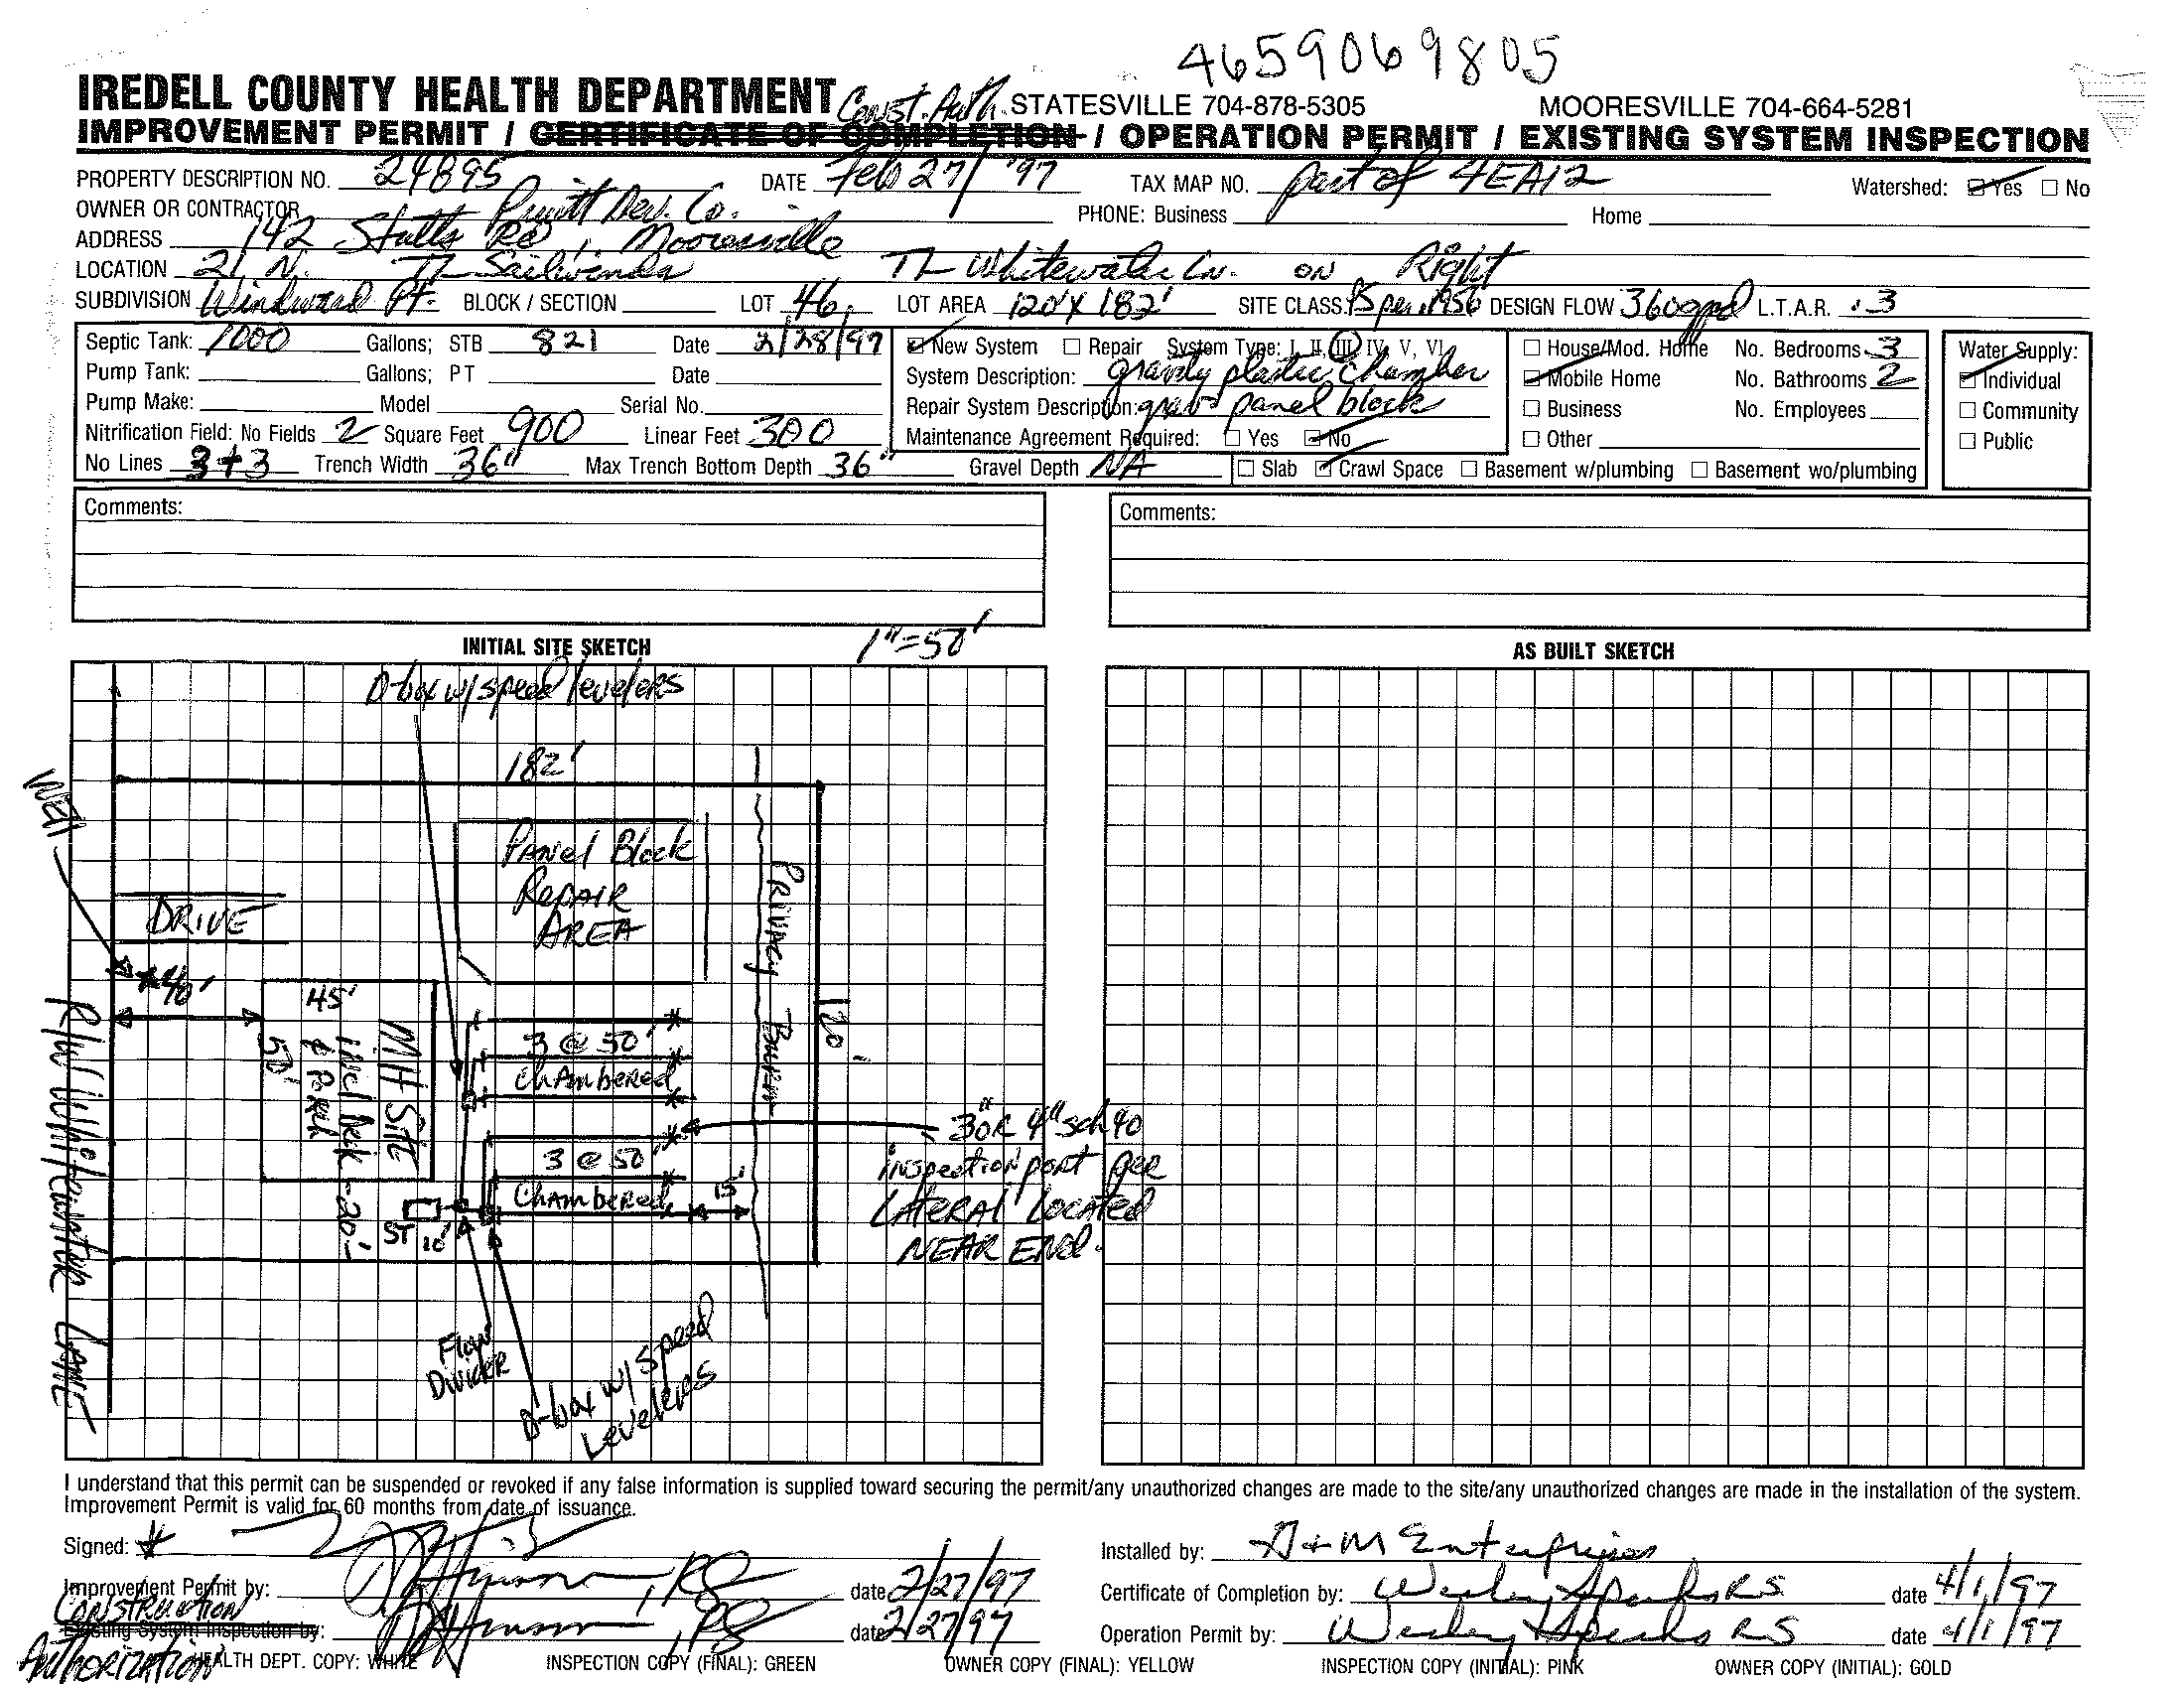 4659069805
IREDELL COUNTY HEALTH DEPARTMENT Const. Auth. STATESVILLE 704-878-5305 MOORESVILLE 704-664-5281
IMPROVEMENT PERMIT / CERTIFICATE OF COMPLETION / OPERATION PERMIT / EXISTING SYSTEM INSPECTION
PROPERTY DESCRIPTION NO. 24895 DATE Feb 27/ '97 TAX MAP NO. part of 4EA12 Watershed: ☑ Yes ☐ No
OWNER OR CONTRACTOR Pruitt Dev. Co. PHONE: Business Home
ADDRESS 142 Stutts Rd, Mooresville
LOCATION 21 N. TL Sailwinds TL Whitewater Ln. on Right
SUBDIVISION Windward Pt. BLOCK / SECTION LOT 46, LOT AREA 120' X 182' SITE CLASS. PS per .1956 DESIGN FLOW 360gpd L.T.A.R. .3
Septic Tank: 1000 Gallons; STB 821 Date 2/28/97 ☑ New System ☐ Repair System Type: I, II, III, IV, V, VI ☐ House/Mod. Home No. Bedrooms 3 Water Supply:
Pump Tank: Gallons; PT Date System Description: gravity plastic chamber ☑ Mobile Home No. Bathrooms 2 ☑ Individual
Pump Make: Model Serial No. Repair System Description: grav panel block ☐ Business No. Employees ☐ Community
Nitrification Field: No Fields 2 Square Feet 900 Linear Feet 300 Maintenance Agreement Required: ☐ Yes ☑ No ☐ Other ☐ Public
No Lines 3+3 Trench Width 36" Max Trench Bottom Depth 36" Gravel Depth NA ☐ Slab ☑ Crawl Space ☐ Basement w/plumbing ☐ Basement wo/plumbing
Comments: Comments:
INITIAL SITE SKETCH 1"=50' AS BUILT SKETCH
D-box w/speed levelers
182'
Well
Panel Block
Repair
Area
Privacy Burm
DRIVE
40'
45'
50'
MH SITE
Incl Deck
& Porch
120'
3 @ 50'
Chambered
3" OR 4" sch 40
inspection port per
Lateral Located
NEAR END.
3 @ 50'
Chambered
15'
ST 10'
20'
R/W Whitewater Lane
Flow
Divider
D-box w/ speed
Levelers
I understand that this permit can be suspended or revoked if any false information is supplied toward securing the permit/any unauthorized changes are made to the site/any unauthorized changes are made in the installation of the system.
Improvement Permit is valid for 60 months from date of issuance.
Signed: Installed by: D+M Enterprises
Improvement Permit by: , RS date 2/27/97 Certificate of Completion by: Wesley Speaks RS date 4/1/97
Construction
Existing System Inspection by: , RS date 2/27/97 Operation Permit by: Wesley Speaks RS date 4/1/97
Authorization HEALTH DEPT. COPY: WHITE INSPECTION COPY (FINAL): GREEN OWNER COPY (FINAL): YELLOW INSPECTION COPY (INITIAL): PINK OWNER COPY (INITIAL): GOLD